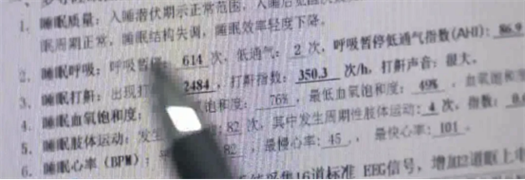 1. 睡眠质量：入睡潜伏期示正常范围，
眠周期正常，睡眠结构失调，睡眠效率轻度下降。
2. 睡眠呼吸：呼吸暂停 614 次，低通气：2 次，呼吸暂停低通气指数(AHI)：86.9
3. 睡眠打鼾：出现打 2484，打鼾指数：350.3 次/h，打鼾声音：很大。
4. 睡眠血氧饱和度： 饱和度：76%，最低血氧饱和度：49%，血氧饱和
5. 睡眠肢体运动：发生 82 次，其中发生周期性肢体运动：4 次，指数：
6. 睡眠心率（BPM）： 82，最慢心率：45，最快心率：101。
采集16道标准 EEG信号，增加12道眼上